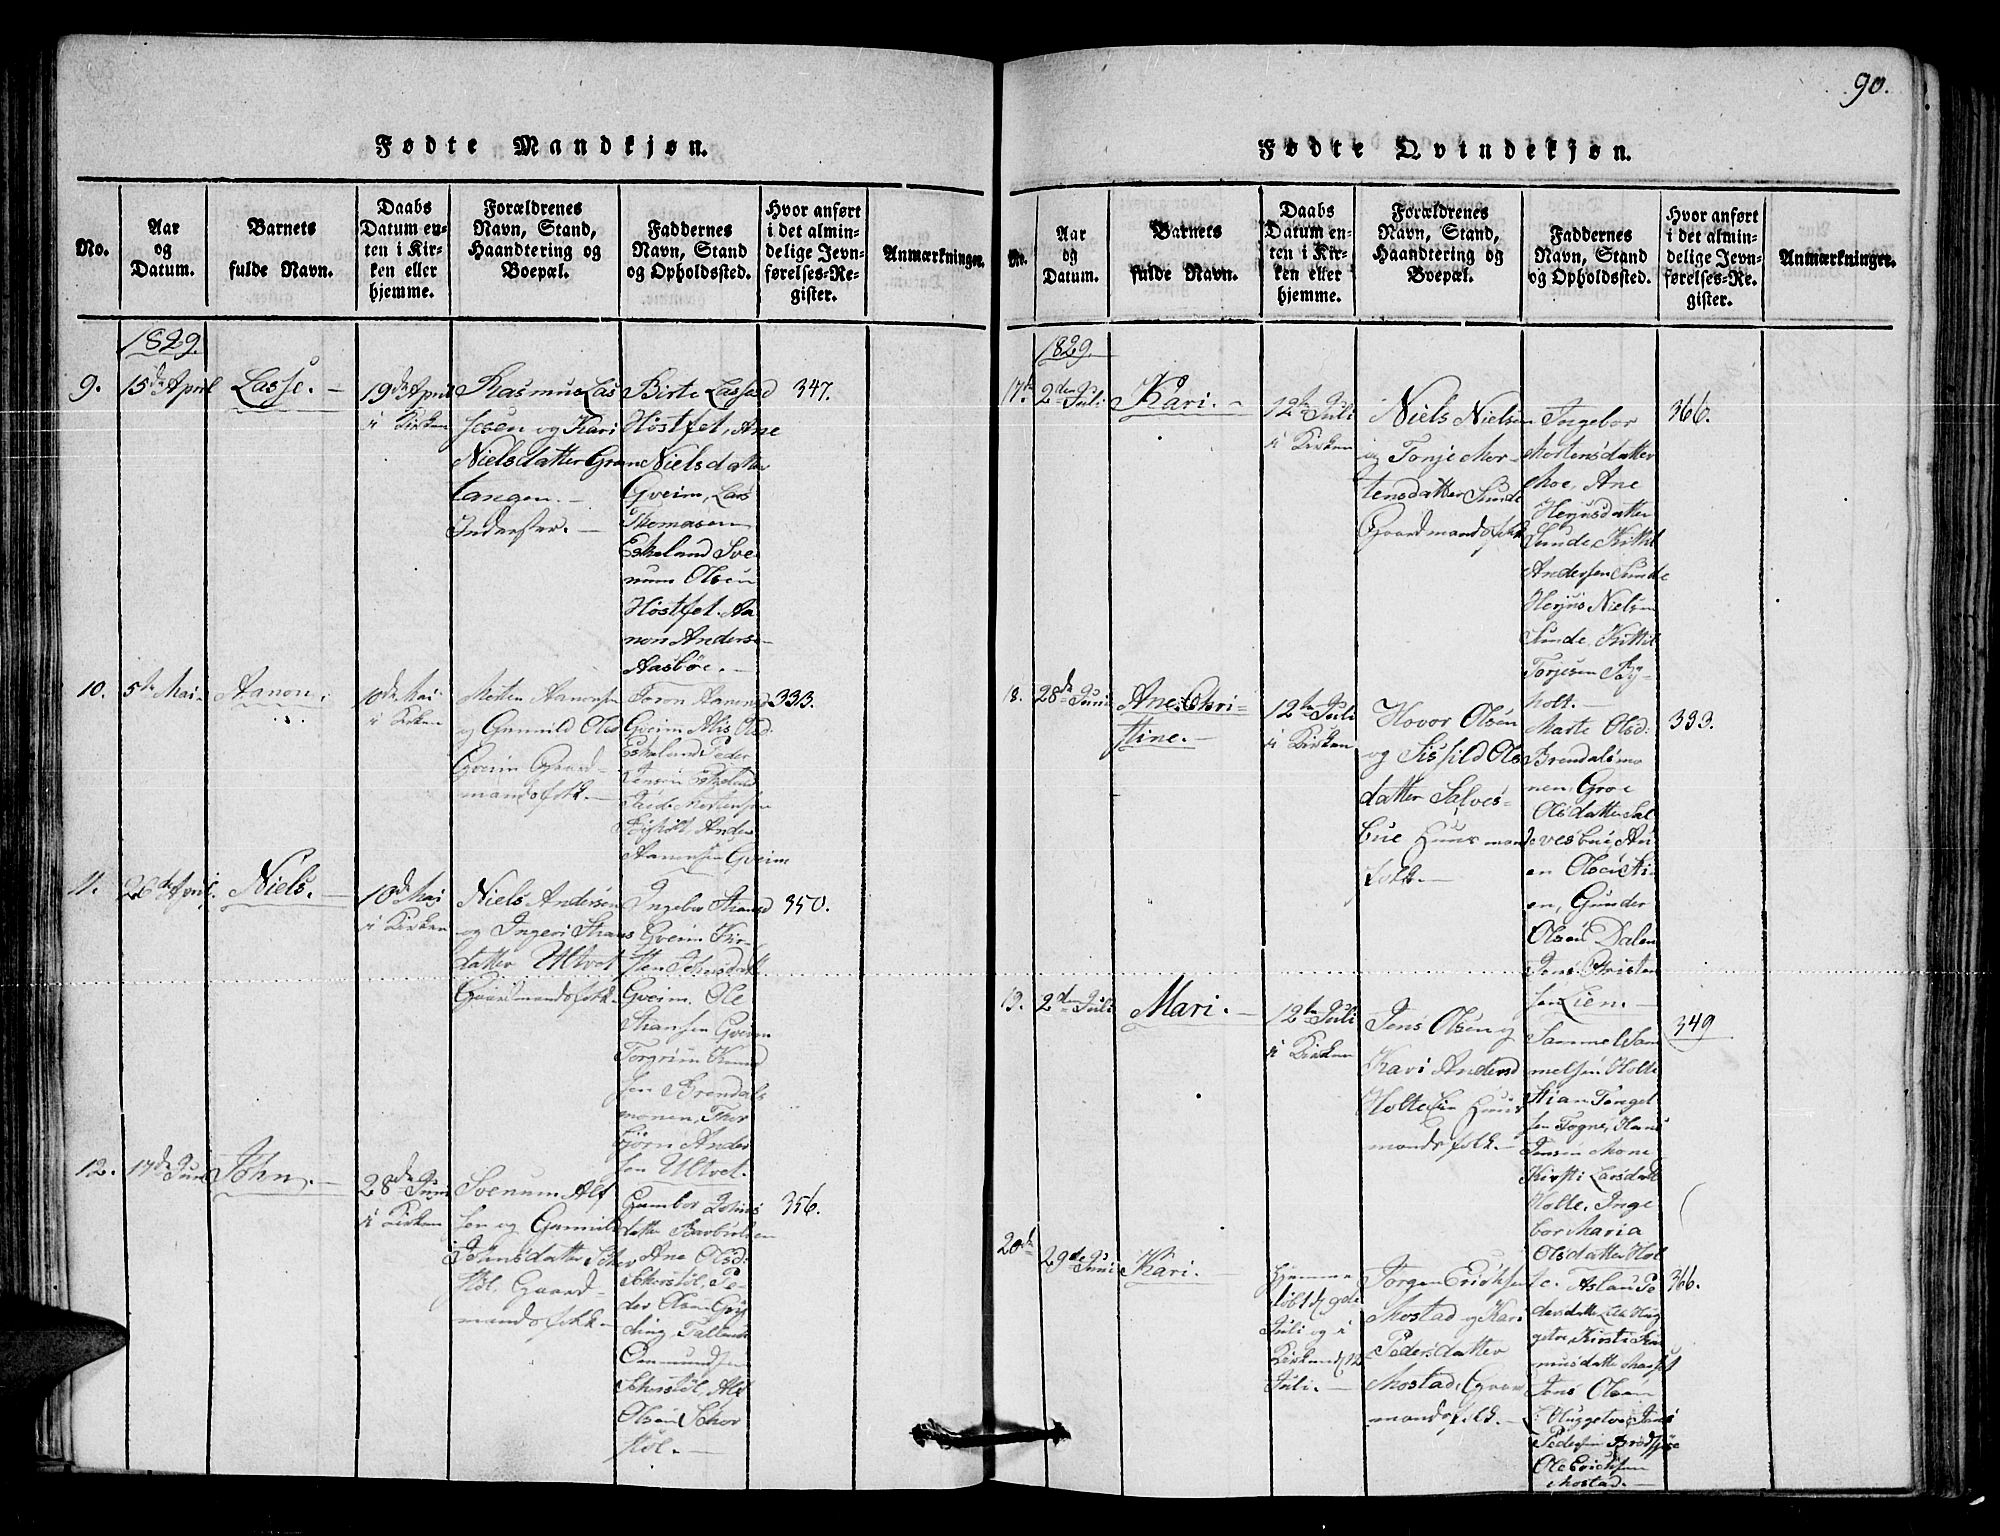 90.
Fødte Mandkjøn.
No.
Aar
og
Datum.
Barnets
fulde Navn.
Daabs
Datum en-
ten i Kir-
ken eller
hjemme.
Forældrenes
Navn, Stand,
Haandtering og
Boepæl.
Faddernes
Navn, Stand
og Opholdssted.
Hvor anført
i det almin-
delige Jevn-
førelses-Re-
gister.
Anmærkninger.
1829.
9.
15de April
Lasse.
19de April
i Kirken
Rasmus Las
sesen og Kari
Nielsdatter Gran
tangen.
Inderster.
Birte Lassesd
Høstfet, Ane
Nielsdatter
Gveim, Lars
Thomasen
Eskeland Sve
num Olsen
Høstfet. Aa
non Anders-
Aasbøe.
347.
10.
5te Mai
Aanon.
10de Mai
i Kirken
Morten Aanons
og Gunnild Olsd
Gveim Gaard-
mandsfolk.
Gveim Olsd.
Eskeland Peder
Jensen Eskeland
Mortensen
Anders
Aanonsen Gveim
333.
11.
26de April
Niels.
10de Mai
i Kirken
Niels Andersen
og Ingeri
datter Ultvet
Gaardmandsfolk.
Ingebor
Gveim Kir-
sten
Gveim. Ole
Gveim
Torgrim Knud
sen Brendals
monen, Thor
bjørn Ander
sen Ultvet.
350.
12.
17de Juni
John.
28de Juni
i Kirken
Svenum Alf
sen og Gunnild
Johnsdatter Skor
støl. Gaard-
mandsfolk.
Gunbor Johns
datter
Ane Olsd:
Skorstøl, Pe-
der Olsen Gry
ding, Tallend
Oemundsen
Skorstøl, Alf
Olsen Skor
støl.
356.
Fødte Qvindekjøn.
No.
Aar
og
Datum.
Barnets
fulde Navn.
Daabs
Datum en-
ten i Kir-
ken eller
hjemme.
Forældrenes
Navn, Stand,
Haandtering og
Boepæl.
Faddernes
Navn, Stand
og Opholdssted.
Hvor anført
i det almin-
delige Jevn-
førelses-Re-
gister.
Anmærkninger.
1829.
17de
2den Juli
Kari.
12te Juli
i Kirken
Niels Nielsen
og Tonje Mor-
tensdatter Sunde
Gaardmandsfolk
Ingebor
Mortensdatter
Moe, Ane
Herjusdatter
Sunde, Kittel
Andersen Sunde
Herjus Nielsen
Sunde, Kittil
Torjesen Røy-
holt.
366.
18.
28de Juni
Ane Chri-
stine.
12te Juli
i Kirken
Hovor Olsen
og Sissild Ols
datter Salves-
bue Huusmand
folk.
Marte Olsd:
Brendalsmo
nen, Groe
Olsdatter Sal
vesbue, Au
en Olsen
en, Gunder
Olsen Dalen
Jens Kristen
sen Lien.
333.
19.
2den Juli
Mari.
12te Juli
i Kirken
Jens Olsen og
Kari Andersd
Holte Huus
mandsfolk.
Sammel Sam
melsen Holte
Stian Tengel
sen Fogne, Hans
Jensen Mone
Kirsti Larsdatt
Holte, Inge
bor Maria
Olsdatter Hol
te.
349
20de
29de Juni
Kari.
Hjemme
døbt d. 9de
Juli og i
Kirken d. 12
Juli.
Jørgen Erichsen
Mostad og Kari
Pedersdatter
Mostad, Gaard
mandsfolk.
Aslau Pe
dersdatter
Kirsti
Jens Olsen
Jens
Pedersen
Ole Erichsen
Mostad.
366.